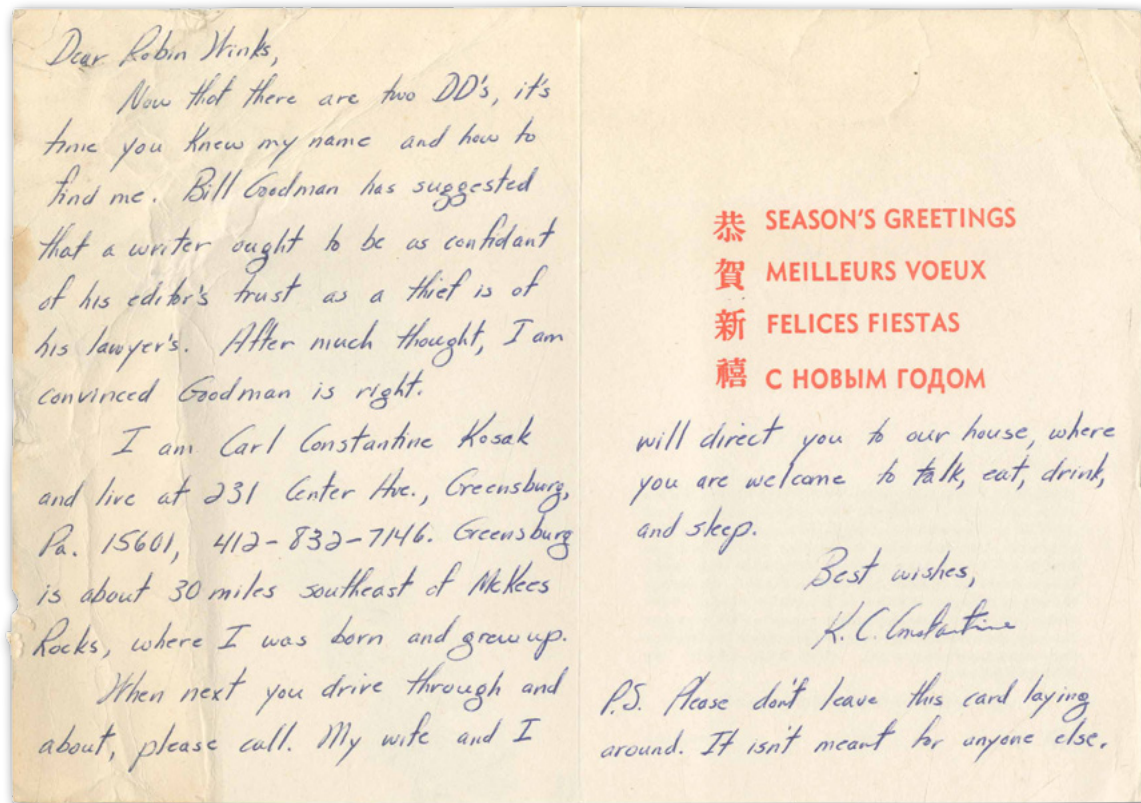 Dear Robin Winks,
Now that there are two DD's, it's
time you knew my name and how to
find me. Bill Goodman has suggested
that a writer ought to be as confidant
of his editor's trust as a thief is of
his lawyer's. After much thought, I am
convinced Goodman is right.
I am Carl Constantine Kosak
and live at 231 Center Ave., Greensburg,
Pa. 15601, 412-832-7146. Greensburg
is about 30 miles southeast of McKees
Rocks, where I was born and grew up.
When next you drive through and
about, please call. My wife and I
恭 SEASON'S GREETINGS
賀 MEILLEURS VOEUX
新 FELICES FIESTAS
禧 С НОВЫМ ГОДОМ
will direct you to our house, where
you are welcome to talk, eat, drink,
and sleep.
Best wishes,
K. C. Constantine
P.S. Please don't leave this card laying
around. It isn't meant for anyone else.